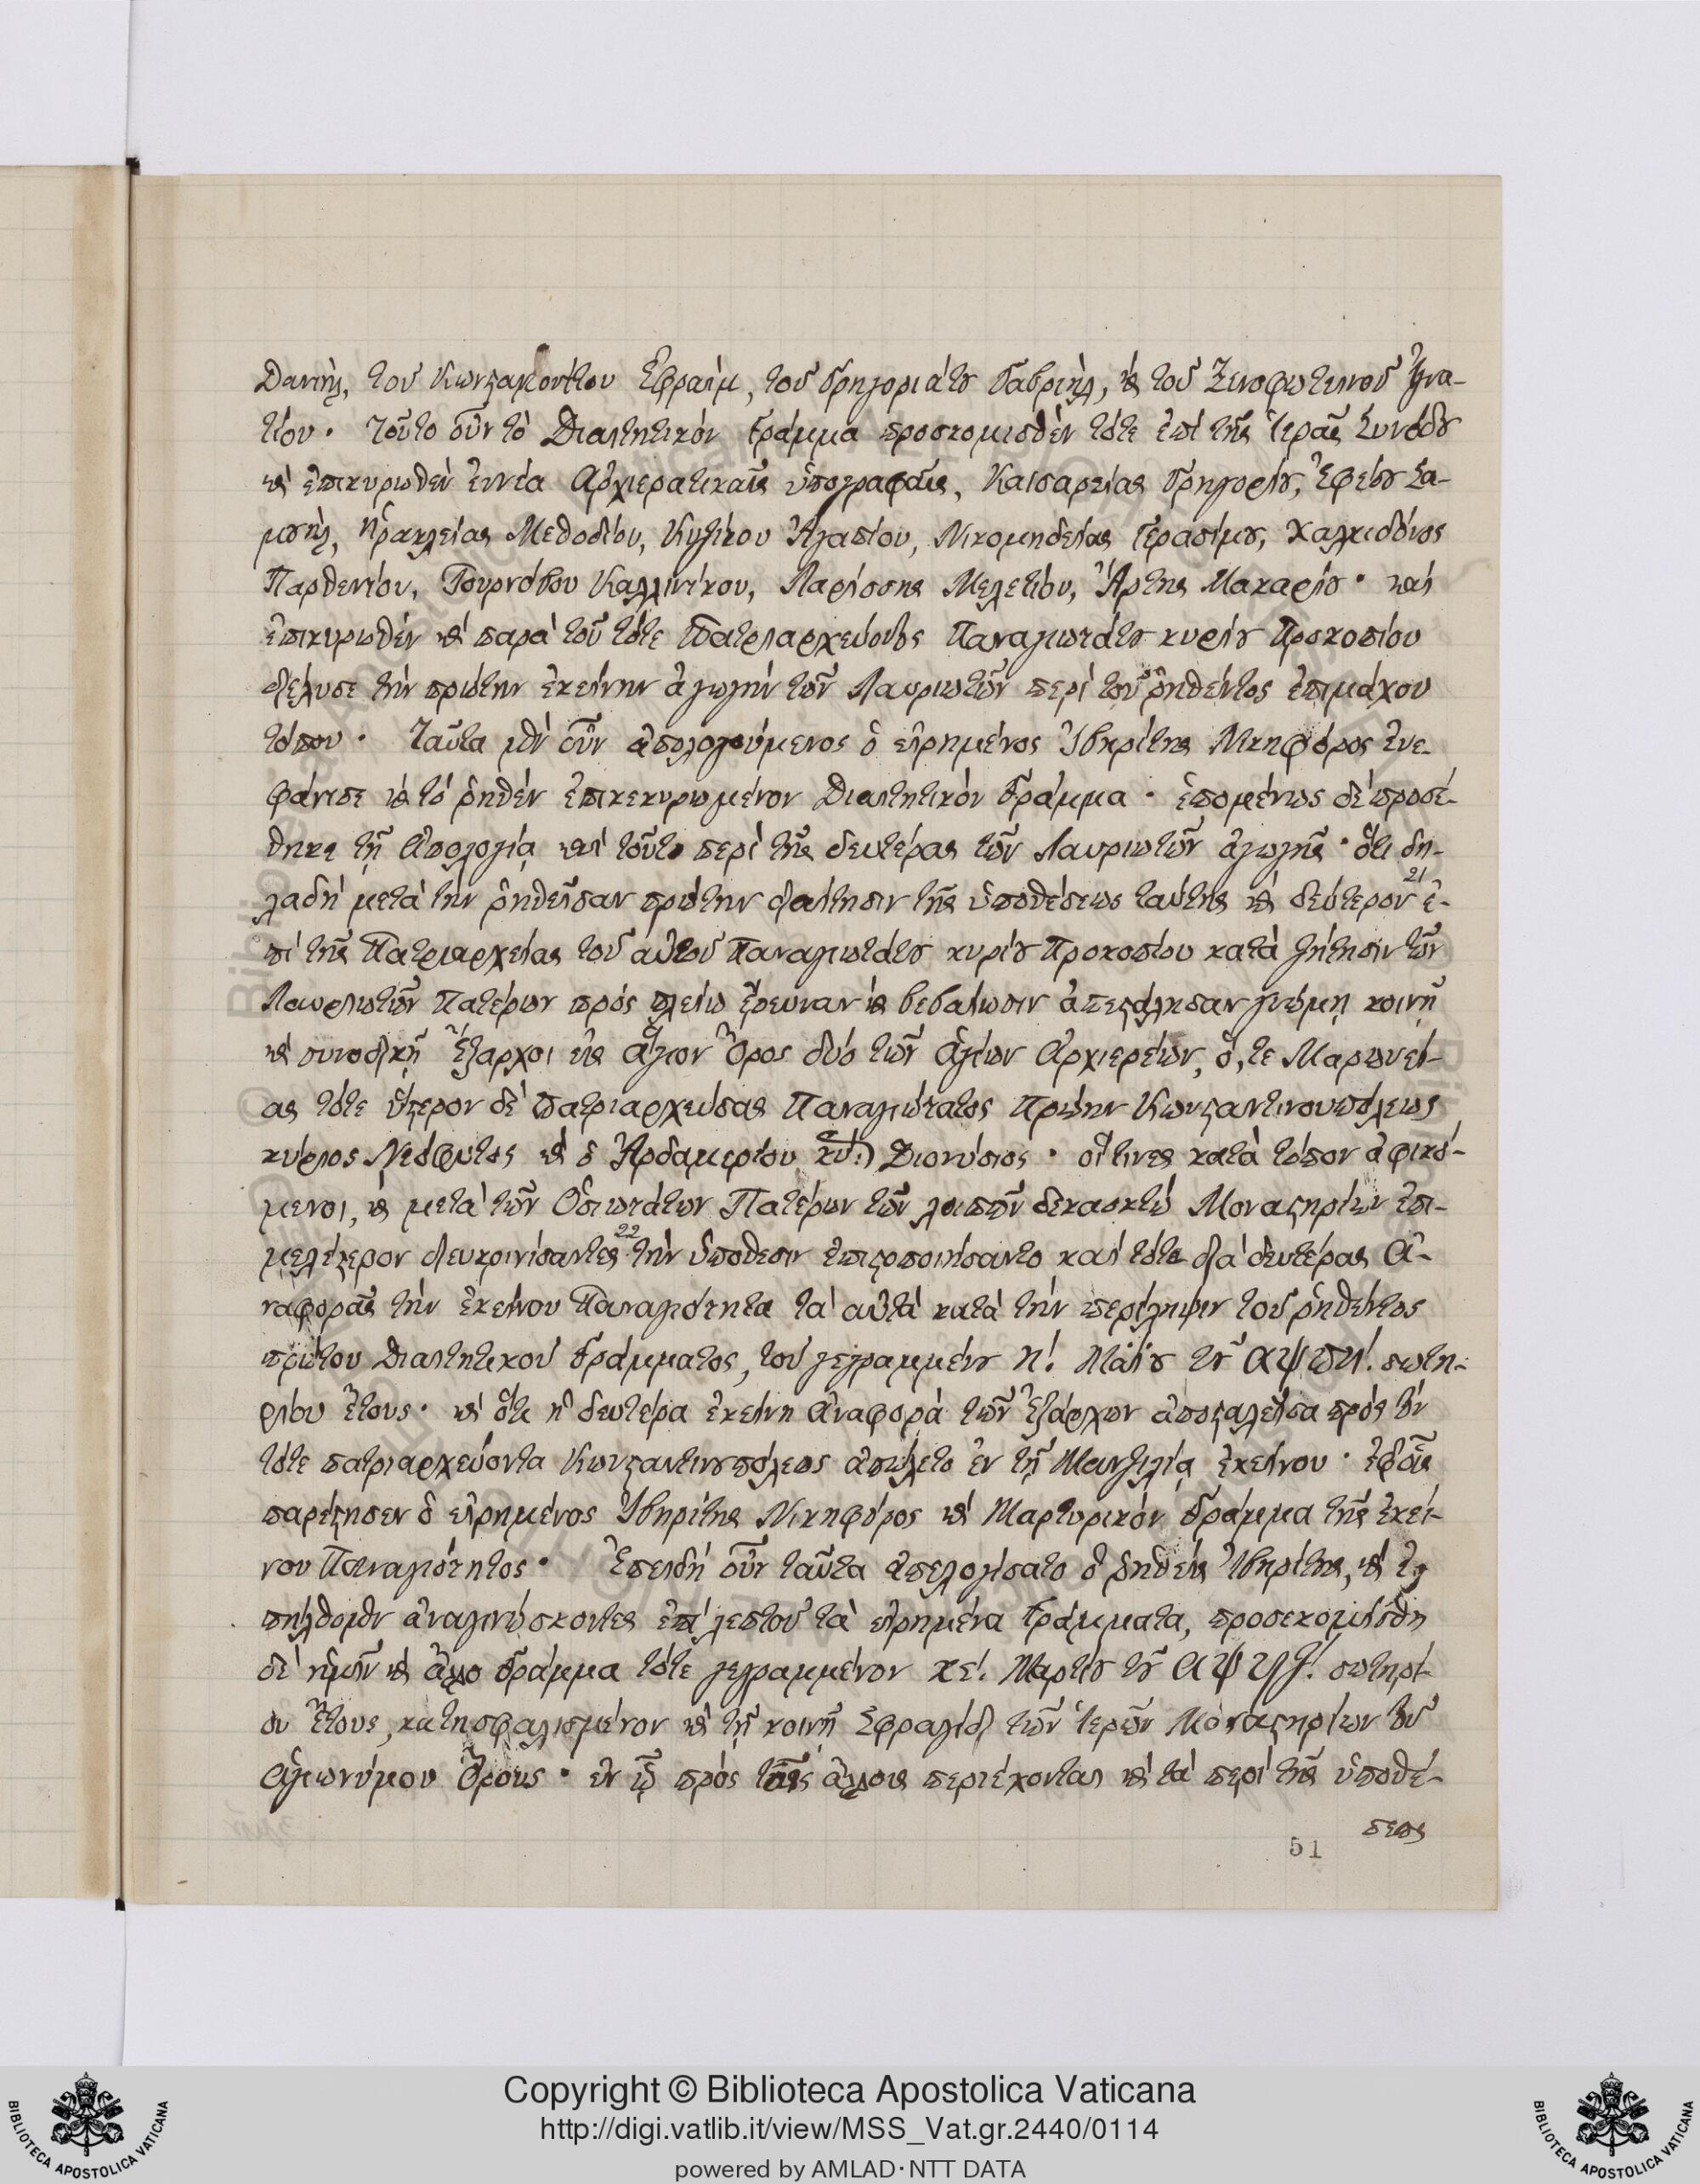 Δανιὴλ, τοῦ Κωνσταμονίτου Ἐφραὶμ, τοῦ Γρηγοριάτου Γαβριὴλ, καὶ τοῦ Ξενοφωτεινοῦ Ἰγνα-
τίου· Τοῦτο οὖν τὸ Διαιτητικὸν Γράμμα προσκομισθὲν τότε ἐπὶ τῆς Ἱερᾶς Συνόδου
καὶ ἐπικυρωθὲν ἐννέα Ἀρχιερατικαῖς ὑπογραφαῖς, Καισαρείας Γρηγορίου, Ἐφέσου Σα-
μουὴλ, Ἡρακλείας Μεθοδίου, Κυζίκου Ἀγαπίου, Νικομηδείας Γερασίμου, Χαλκιδόνος
Παρθενίου, Τουρνόβου Καλλινίκου, Λαρίσσης Μελετίου, Ἄρτης Μακαρίου· καὶ
ἐπικυρωθὲν καὶ παρὰ τοῦ τότε Πατριαρχεύοντος Παναγιωτάτου κυρίου Προκοπίου
διέλυσε τὴν πρώτην ἐκείνην ἀγωγὴν τῶν Λαυριωτῶν περὶ τοῦ ῥηθέντος ἐπιμάχου
τόπου· Ταῦτα μὲν οὖν ἀπολογούμενος ὁ εἰρημένος Ἰβηρίτης Νικηφόρος ἐνε-
φάνισε καὶ τὸ ῥηθὲν ἐπικεκυρωμένον Διαιτητικὸν Γράμμα· ἑπομένως δὲ προσέ-
θηκε τῇ Ἀπολογίᾳ καὶ τοῦτο περὶ τῆς δευτέρας τῶν Λαυριωτῶν ἀγωγῆς· ὅτι δη-
λαδὴ μετὰ τὴν ῥηθεῖσαν πρώτην διαίτησιν τῆς ὑποθέσεως ταύτης καὶ δεύτερον 21 ἐ-
πὶ τῆς Πατριαρχείας τοῦ αὐτοῦ Παναγιωτάτου κυρίου Προκοπίου κατὰ ζήτησιν τῶν
Λαυριωτῶν Πατέρων πρὸς πλείω ἔρευναν καὶ βεβαίωσιν ἀπεστάλησαν γνώμῃ κοινῇ
καὶ συνοδικῇ Ἔξαρχοι εἰς Ἅγιον Ὄρος δύο τῶν ἁγίων Ἀρχιερέων, ὅ, τε Μαρωνεί-
ας τότε ὕστερον δὲ πατριαρχεύσας Παναγιώτατος πρώην Κωνσταντινουπόλεως
κύριος Νεόφυτος καὶ ὁ Ἀρδαμερίου κύ:) Διονύσιος· οἵτινες κατὰ τόπον ἀφικό-
μενοι, καὶ μετὰ τῶν Ὁσιωτάτων Πατέρων τῶν λοιπῶν δεκαοκτὼ Μοναστηρίων ἐπι-
μελέστερον διευκρινίσαντες 22 τὴν ὑπόθεσιν ἐπιστοποιήσαντο καὶ τότε διὰ δευτέρας Ἀ-
ναφορᾶς τὴν ἐκείνου Παναγιότητα τὰ αὐτὰ κατὰ τὴν περίληψιν τοῦ ῥηθέντος
πρώτου Διαιτητικοῦ Γράμματος, τοῦ γεγραμμένου η! Μαΐου τοῦ αψπη! σωτη-
ρίου ἔτους· καὶ ὅτι ἡ δευτέρα ἐκείνη Ἀναφορὰ τῶν Ἐξάρχων ἀποσταλεῖσα πρὸς τὸν
τότε πατριαρχεύοντα Κωνσταντινουπόλεως ἀπώλετο ἐν τῇ Μαντζιλίᾳ ἐκείνου· ἐφ' οἷς
παρέστησεν ὁ εἰρημένος Ἰβηρίτης Νικηφόρος καὶ Μαρτυρικὸν Γράμμα τῆς ἐκεί-
νου Παναγιότητος· Ἐπειδὴ οὖν ταῦτα ἀπελογήσατο ὁ ῥηθεὶς Ἰβηρίτης, καὶ ἐ-
πήλθομεν ἀναγινώσκοντες ἐπὶ λεπτοῦ τὰ εἰρημένα Γράμματα, προσεκομίσθη
δὲ ἡμῖν καὶ ἄλλο Γράμμα τότε γεγραμμένον κε! Μαρτίου τοῦ αψϟζ! σωτηρί-
ου Ἔτους, κατησφαλισμένον καὶ τῇ κοινῇ Σφραγίδι τῶν ἱερῶν Μοναστηρίων τοῦ
ἁγιωνύμου Ὄρους· ἐν ᾧ πρὸς τοῖς ἄλλοις περιέχονται καὶ τὰ περὶ τῆς ὑποθέ-
σεως
51
Copyright © Biblioteca Apostolica Vaticana
http://digi.vatlib.it/view/MSS_Vat.gr.2440/0114
powered by AMLAD·NTT DATA
BIBLIOTECA APOSTOLICA VATICANA
BIBLIOTECA APOSTOLICA VATICANA